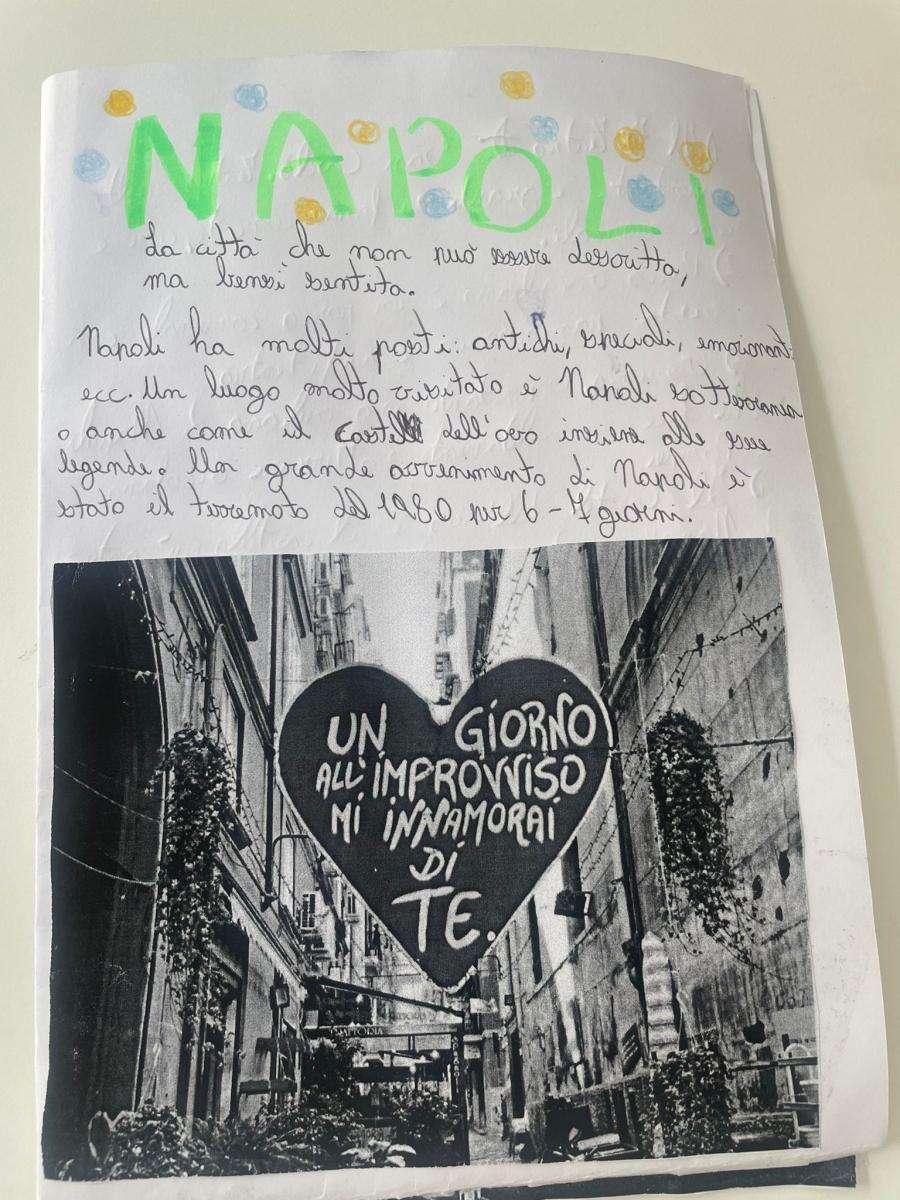 NAPOLI
La città che non può essere descritta,
ma bensì sentita.
Napoli ha molti posti: antichi, speciali, emozionanti
ecc. Un luogo molto visitato è Napoli sotterranea
o anche come il Castello dell'ovo insieme alle sue
legende. Un grande avvenimento di Napoli è
stato il terremoto del 1980 per 6-7 giorni.
UN GIORNO
ALL'IMPROVVISO
MI INNAMORAI
DI
TE.
TRATTORIA